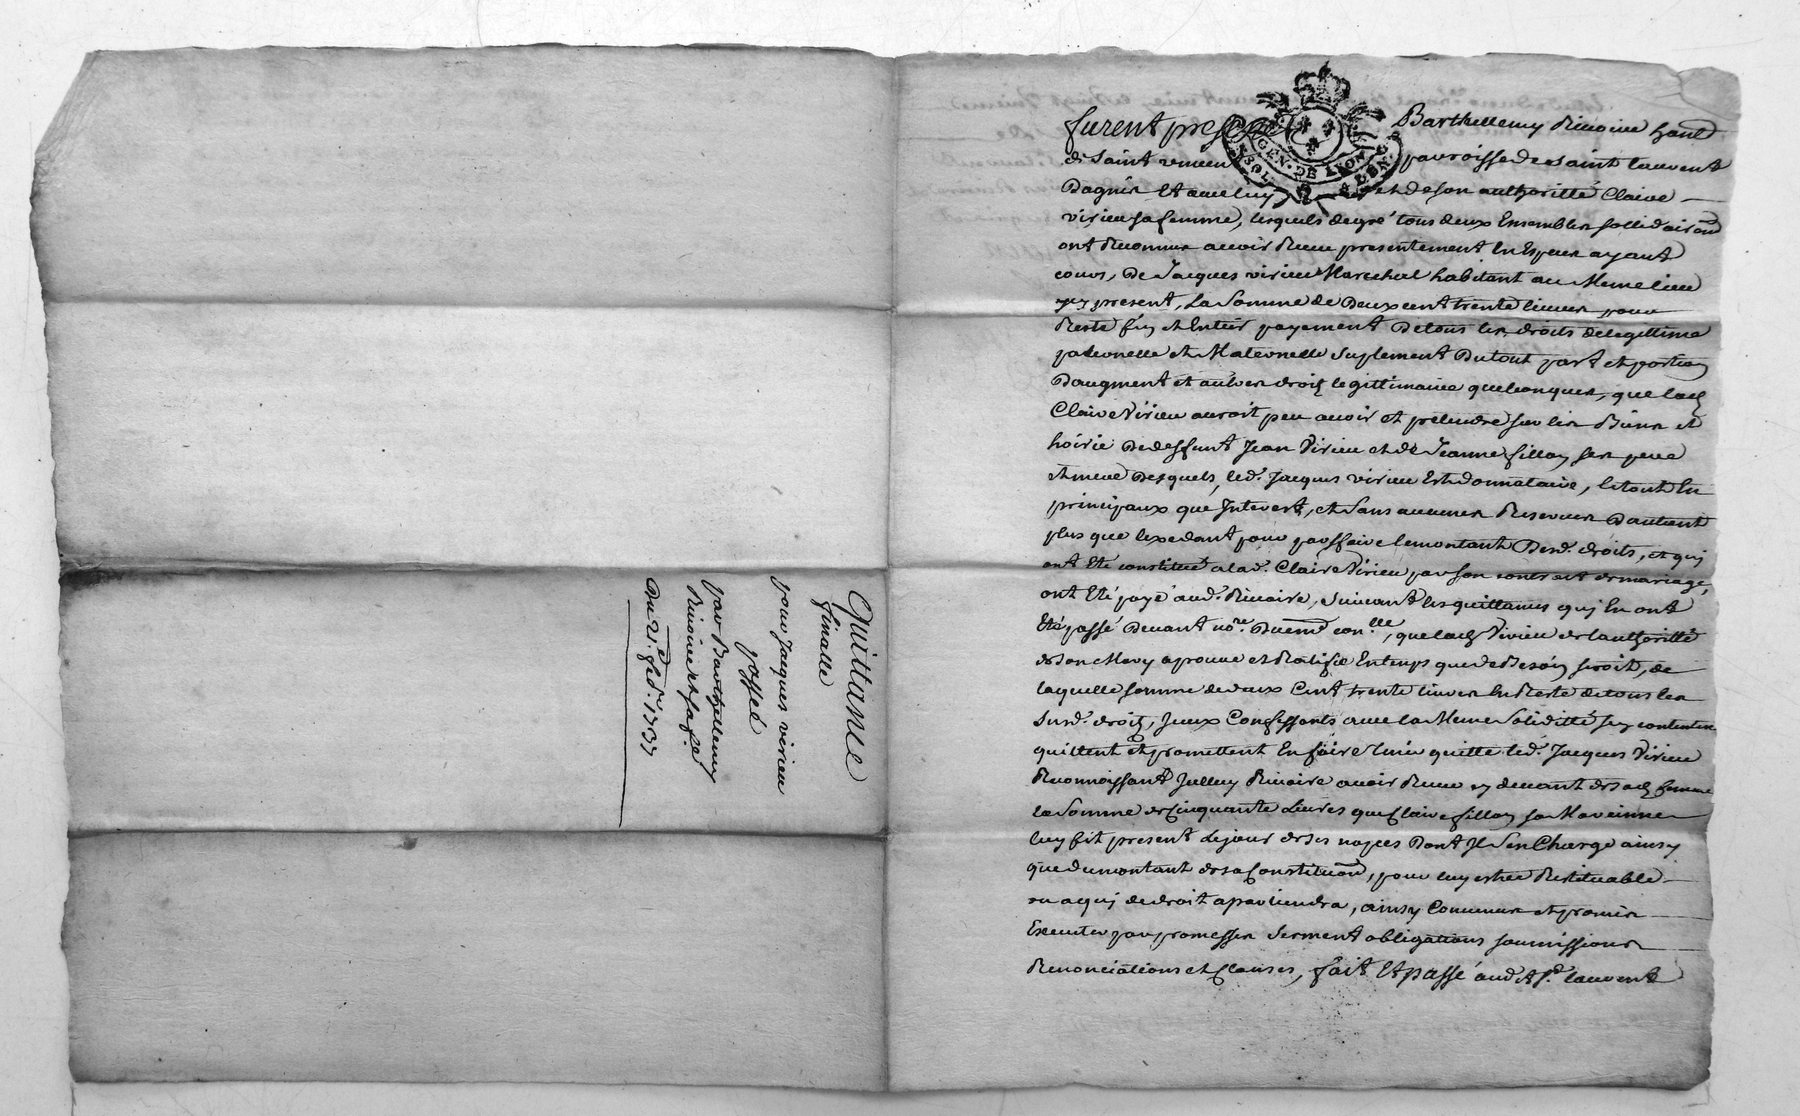 Quittance
finalle
pour Jacques virieu
passée
par Barthellemy
Riuoire et sa fe.
du 21e. fed. 1737
GEN. DE LYON
furent presents Barthellemy Riuoire hant
de Saint vincent parroisse de saint laurent
Dagnin Et auec luy et de son authoritté Claire
virieu sa femme, lesquels de gré tous deux Ensembles sollidairemt
ont Reconnus auoir Receu presentement En Especes ayant
cours, De Jacques virieu Marechal habitant au Meme lieu
icy present, La Somme de Deux cent trente liures pour
Reste fin et Entier payement De tous les droits de legittime
paternelle et Maternelle suplement Du tout part et portion
Daugment et autres droits legittimaires quelconques, que lad.
Claire Virieu auroit peu auoir et pretendre sur les Biens et
hoirie De deffunt Jean Virieu et de Jeanne fillon ses pere
et mere Desquels, led. Jacques virieu Est donnataire, le tout En
principaux que Interets, et Sans aucunes Reserues Dautant
plus que lexedant pour parffaire le montant Desd. droits, et qui
ont Eté constitué a lad. Claire Virieu par son contract de mariage,
ont Eté payé aud. Riuoire, suiuant les quittances qui En ont
Eté passé Deuant nore. que lad. Virieu de lauthoritté
de son Mary aprouue et Ratifie En temps que de Besoin seroit, de
laquelle somme de deux Cent trente liures En Reste de tous les
susd. droits, Iceux Confessants auec la Meme Soliditté sen contentent
quittent et promettent En faire tenir quitte led. Jacques Virieu
Reconnoissant Jcelluy Riuoire auoir Receu cy deuant de sad. femme
la Somme de Cinquante Liures que Claire fillon sa Mareinne
luy fit present le jour de ses nopces Dont Il Sen Charge ainsy
que du montant de sa Constitution, pour luy estre Restituable
ou a qui de droit apartiendra, ainsy Conuenus et promis
Executer par promesses serment obligations soumissions
Renonciations et Clauses, fait Et passé aud. St. laurent